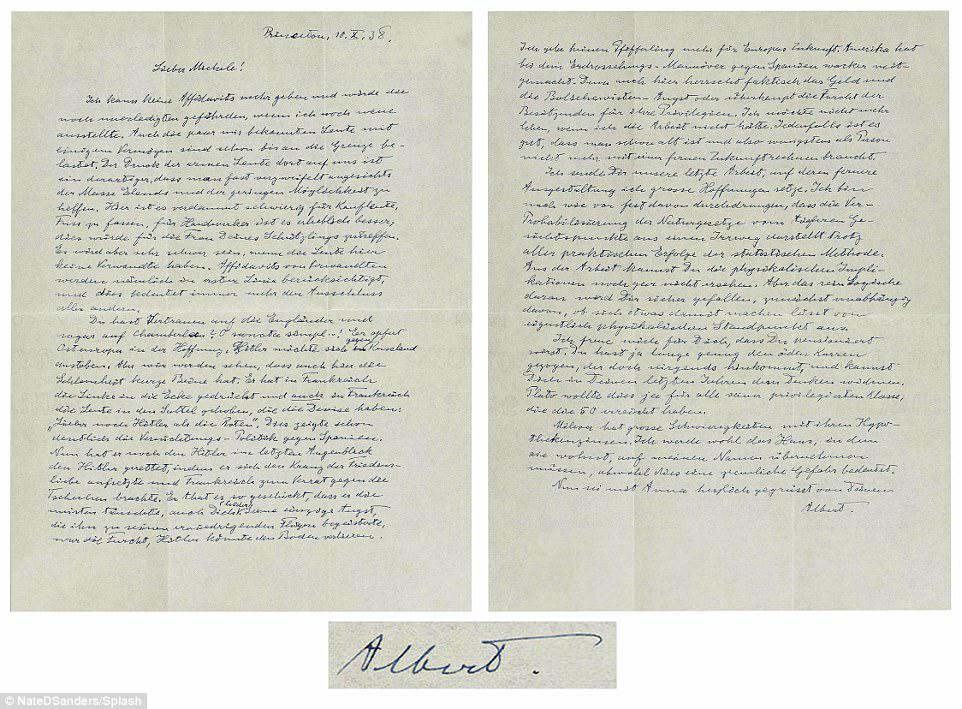 Princeton, 10.X.38.
Lieber Michele!
Ich kann keine Affidavits mehr geben und würde die
noch unerledigten gefährden, wenn ich noch neue
ausstellte. Auch die paar mir bekannten Leute mit
einigem Vermögen sind schon bis an die Grenze be-
lastet. Der Druck der armen Leute dort auf uns ist
ein derartiger, dass man fast verzweifelt angesichts
der Masse Elends und der geringen Möglichkeit zu
helfen. Hier ist es verdammt schwierig für Kaufleute,
Fuss zu fassen, für Handwerker ist es erheblich besser,
dies würde für die Frau Deines Schützlings zutreffen.
Es wird aber sehr schwer sein, wenn die Leute hier
keine Verwandte haben. Affidavits von Verwandten
werden nämlich in erster Linie berücksichtigt,
und dies bedeutet immer mehr den Ausschluss
aller anderen.
Du hast Vertrauen auf die Engländer und
sogar auf Chamberlain? O sancta simpl..! Er opfert
Osteuropa in der Hoffnung, Hitler möchte sich gegen Russland
austoben. Aber wir werden sehen, dass auch hier die
Schlauheit kurze Beine hat. Er hat in Frankreich
die Linke in die Ecke gedrückt und auch in Frankreich
die Leute in den Sattel gehoben, die die Devise haben:
"Lieber noch Hitler als die Roten". Dies zeigte schon
deutlich die Vernichtungs-Politik gegen Spanien.
Nun hat er noch den Hitler im letzten Augenblick
den Hitler gerettet, indem er sich den Kranz der Friedens-
liebe aufsetzte und Frankreich zum Verrat gegen die
Tschechen brachte. Er that es so geschickt, dass er die
meisten täuschte, auch Dich (leider). Seine einzige Angst,
die ihn zu seinen erniedrigenden Flügen begeisterte,
war die Furcht, Hitler könnte den Boden verlieren.
Ich gebe keinen Pfifferling mehr für Europas Zukunft. Amerika hat
bei dem Erdrosselungs-Mannöver gegen Spanien wacker mit-
gemacht. Denn auch hier herrscht faktisch das Geld und
die Bolschewisten-Angst oder überhaupt die Furcht der
Besitzenden für ihre Privilegien. Ich möchte nicht mehr
leben, wenn ich die Arbeit nicht hätte. Jedenfalls ist es
gut, dass man schon alt ist und also wenigstens als Person
nicht mehr mit einer fernen Zukunft rechnen braucht.
Ich sende Dir unsere letzte Arbeit, auf deren fernere
Ausgestaltung ich grosse Hoffnungen setze. Ich bin
nach wie vor fest davon durchdrungen, dass die Ver-
Probabilisierung der Naturgesetze vom tieferen Ge-
sichtspunkte aus einen Irrweg darstellt trotz
aller praktischen Erfolge der statistischen Methode.
Aus der Arbeit kannst Du die physikalischen Impli-
kationen noch gar nicht ersehen. Aber das rein Logische
daran wird Dir sicher gefallen, zunächst unabhängig
davon, ob sich etwas damit machen lässt vom
eigentlich physikalischen Standpunkte aus.
Ich freue mich für Dich, dass Du pensioniert
wirst. Du hast ja lange genug den öden Karren
gezogen, der doch nirgends hinkommt, und kannst
Dich in Deinen letzten Jahren dem Denken widmen.
Plato wollte dies ja für alle seiner privilegierten Klasse,
die die 50 erreicht haben.
Mileva hat grosse Schwierigkeiten mit ihren Hypo-
thekenzinsen. Ich werde wohl das Haus, in dem
sie wohnt, auf meinen Namen übernehmen
müssen, obwohl dies eine ziemliche Gefahr bedeutet.
Nun sei mit Anna herzlich gegrüsst von Deinem
Albert.
Albert.
© NateDSanders/Splash